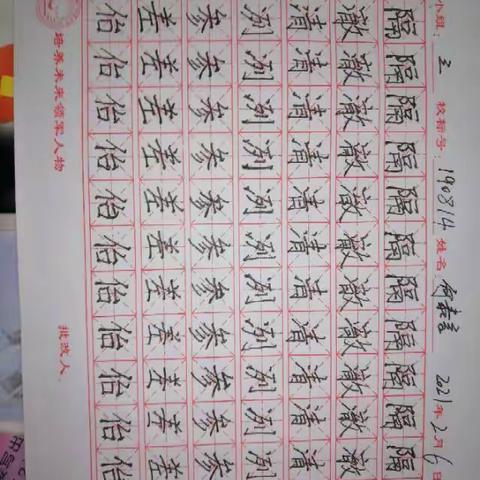 小组： 校标号：190814 姓名： 2021年2月6日
隔隔隔隔隔隔隔隔隔隔
澈澈澈澈澈澈澈澈澈澈
清清清清清清清清清清
冽冽冽冽冽冽冽冽冽冽
参参参参参参参参参参
差差差差差差差差差差
佁佁佁佁佁佁佁佁佁佁
培养未来领军人物 批改人：